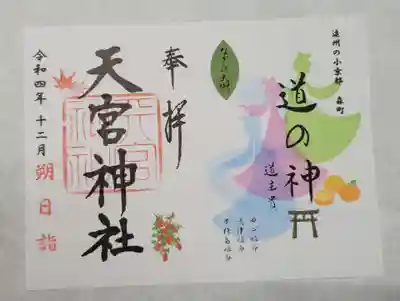 遠州の小京都 森町
道の神
道主貴
田心姫命
奉拝
天宮神社
令和四年十二月朔日詣